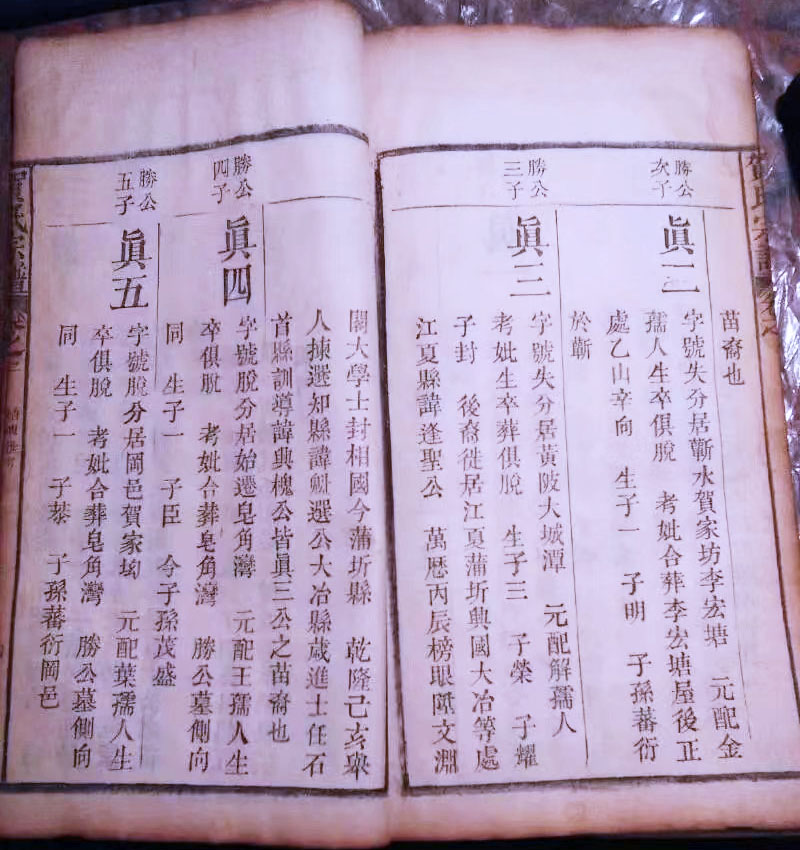 賀氏宗譜
苗裔也
勝公
次子
眞二
字號失分居蘄水賀家坊李宏塘　元配金
孺人生卒俱脫　考妣合葬李宏塘屋後正
處乙山辛向　生子一　子明　子孫蕃衍
於蘄
勝公
三子
眞三
字號失分居黃陂大城潭　元配解孺人
考妣生卒葬俱脫　生子三　子榮　子耀
子封　後裔徙居江夏蒲圻興國大冶等處
江夏縣諱逢聖公　萬厯丙辰榜眼陞文淵
閣大學士封相國今蒲圻縣　乾隆己亥舉
人揀選知縣諱魁選公大冶縣歲進士任石
首縣訓導諱典槐公皆眞三公之苗裔也
勝公
四子
眞四
字號脫分居始遷皂角灣　元配王孺人生
卒俱脫　考妣合葬皂角灣　勝公墓側向
同　生子一　子臣　今子孫茂盛
勝公
五子
眞五
字號脫分居岡邑賀家坳　元配葉孺人生
卒俱脫　考妣合葬皂角灣　勝公墓側向
同　生子一　子恭　子孫蕃衍岡邑
賀氏宗譜